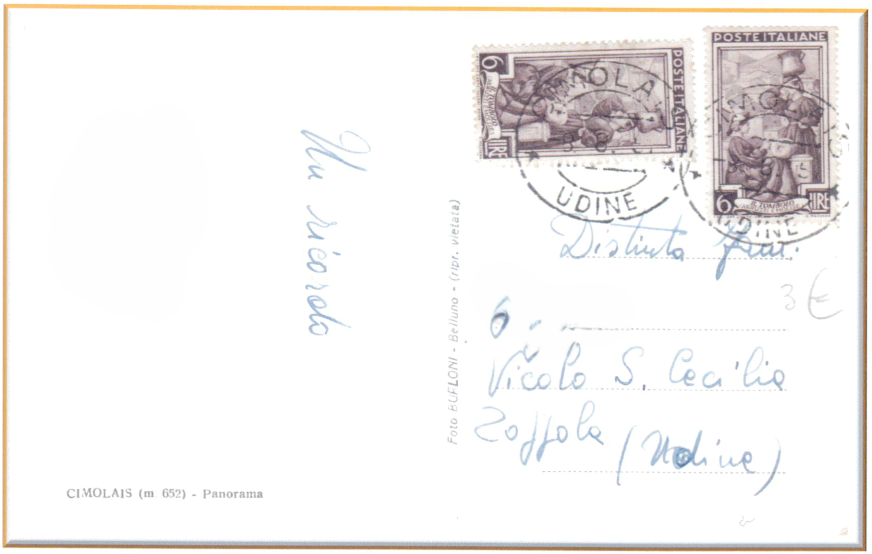 POSTE ITALIANE
6 LIRE
POSTE ITALIANE
6 LIRE
CIMOLAIS
UDINE
CIMOLAIS
UDINE
Un ricordo
Distinta fam.
Vicolo S. Cecilia
Zoppola
(Udine)
3 €
Foto BUFLONI - Belluno - (ripr. vietata)
CIMOLAIS (m. 652) - Panorama